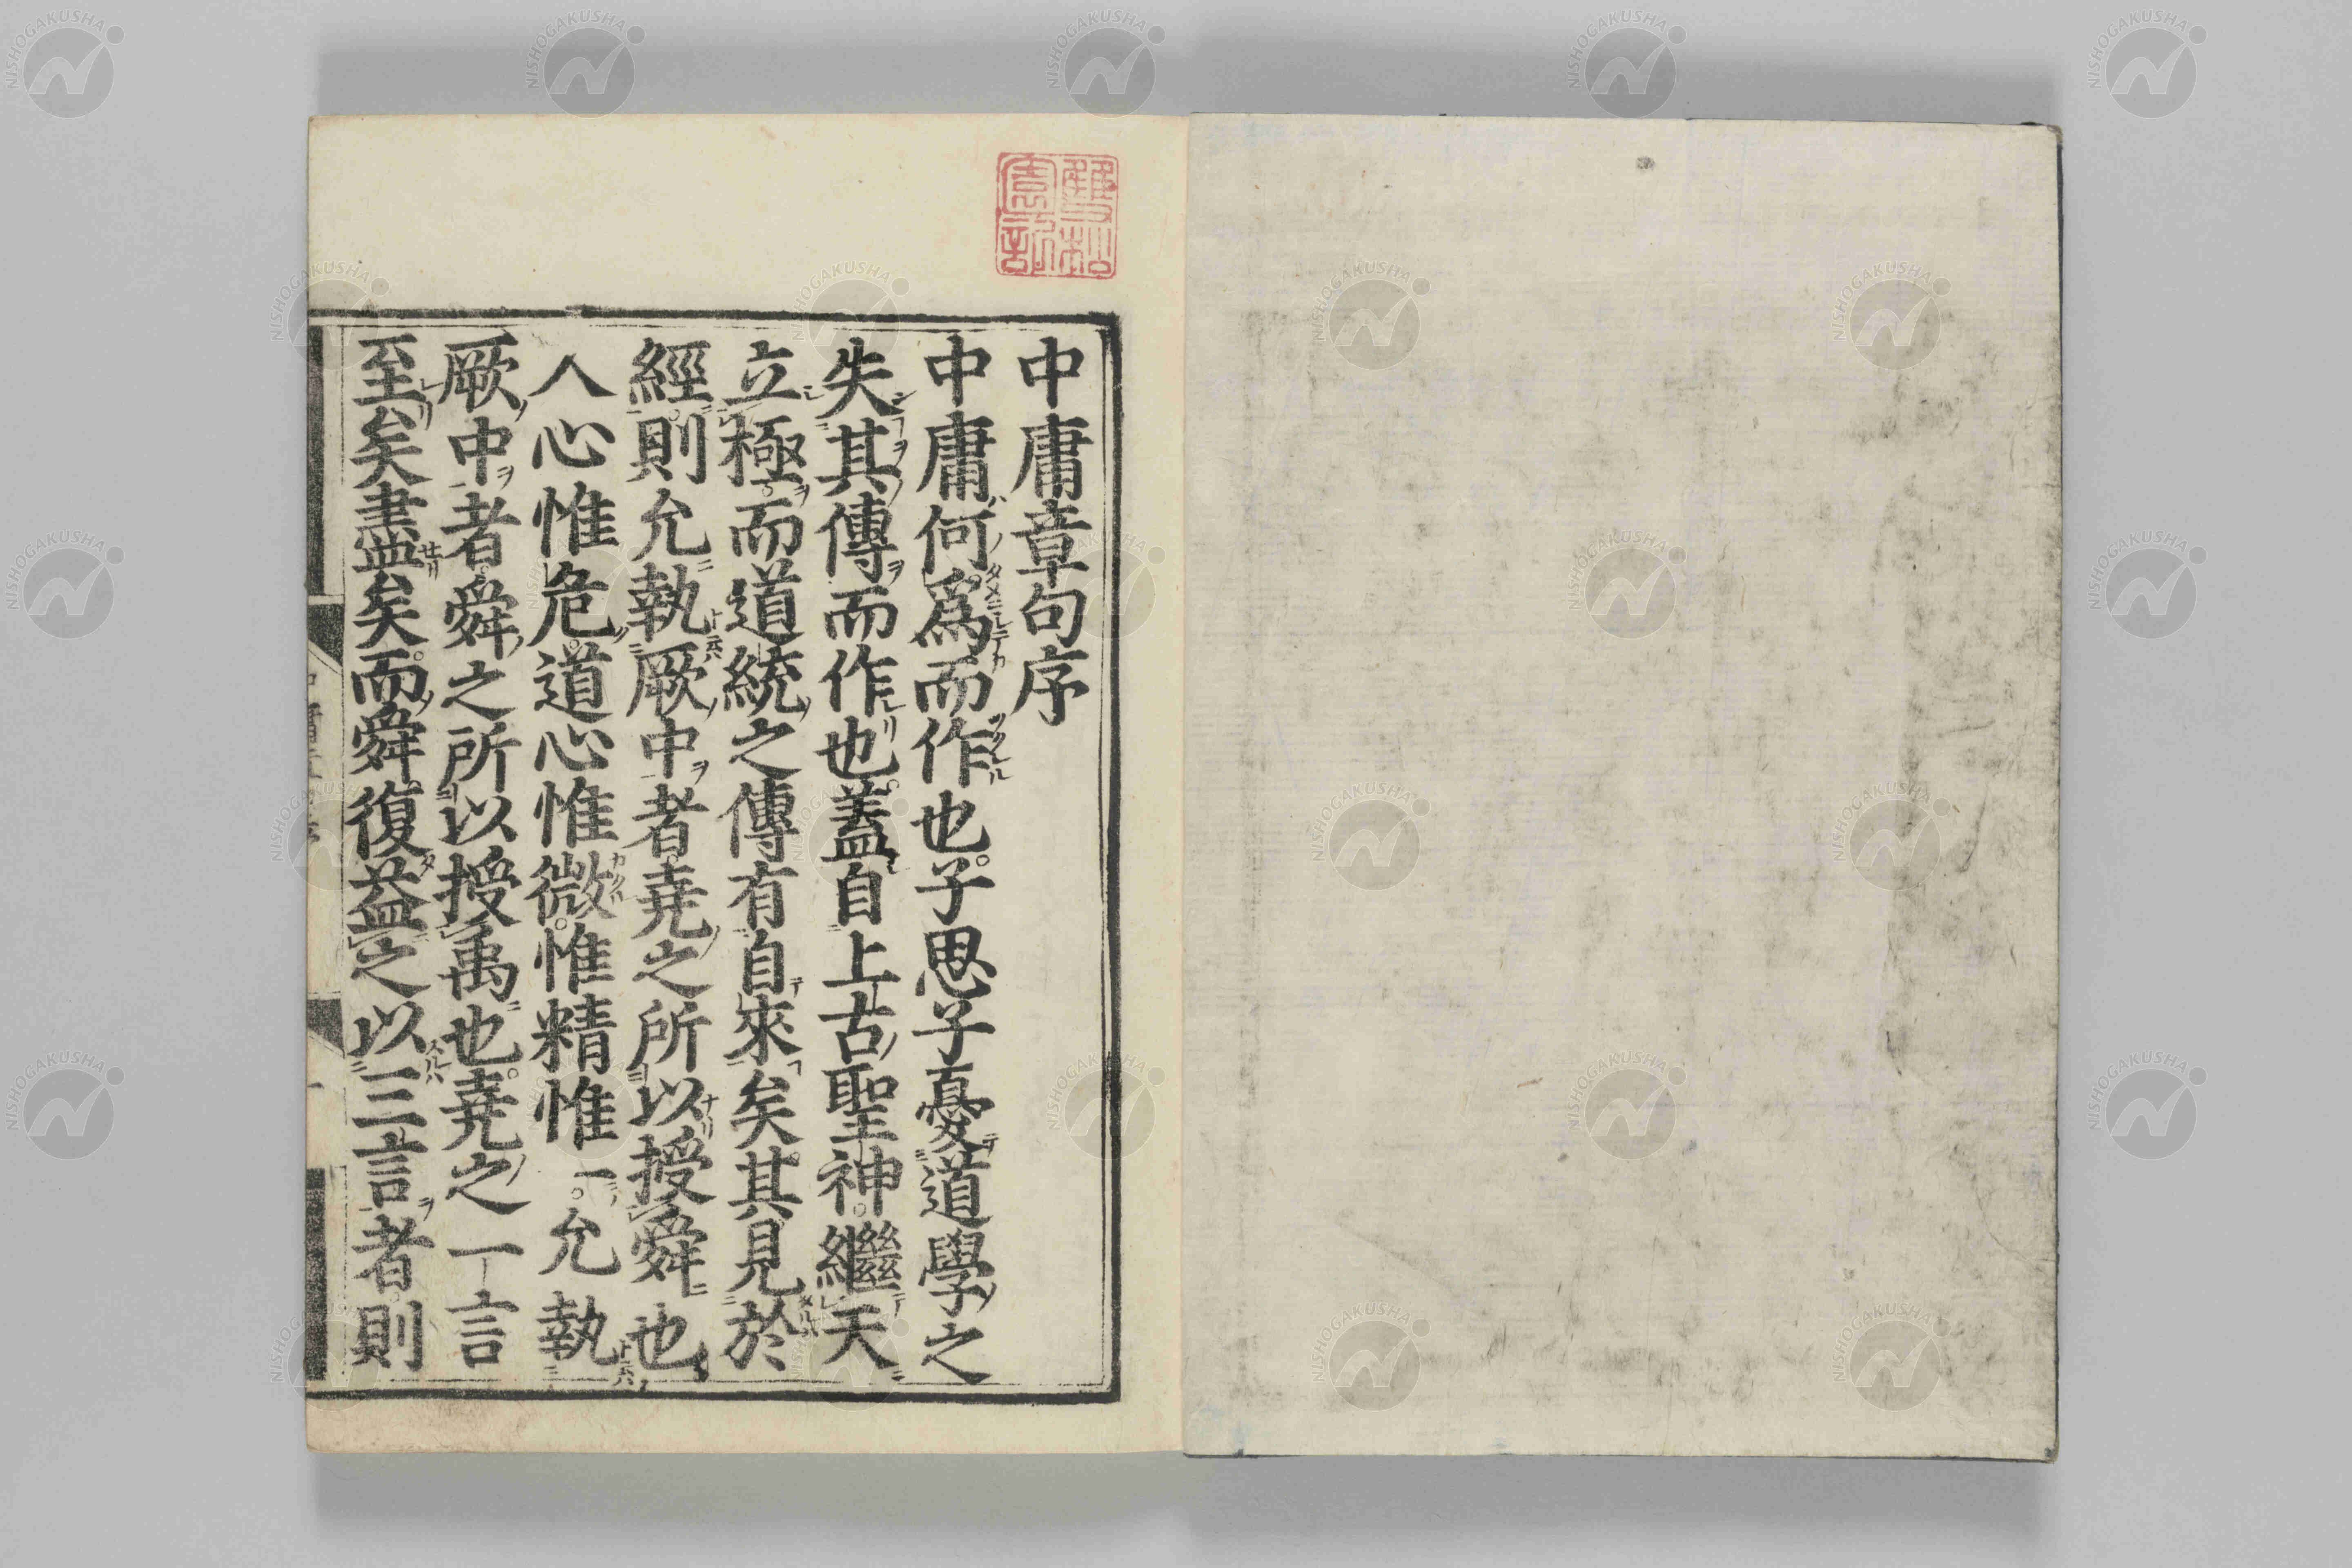 中庸章句序
中庸何爲而作也子思子憂道學之
失其傳而作也蓋自上古聖神繼天
立極而道統之傳有自來矣其見於
經則允執厥中者堯之所以授舜也
人心惟危道心惟微惟精惟一允執
厥中者舜之所以授禹也堯之一言
至矣盡矣而舜復益之以三言者則
NISHOGAKUSHA